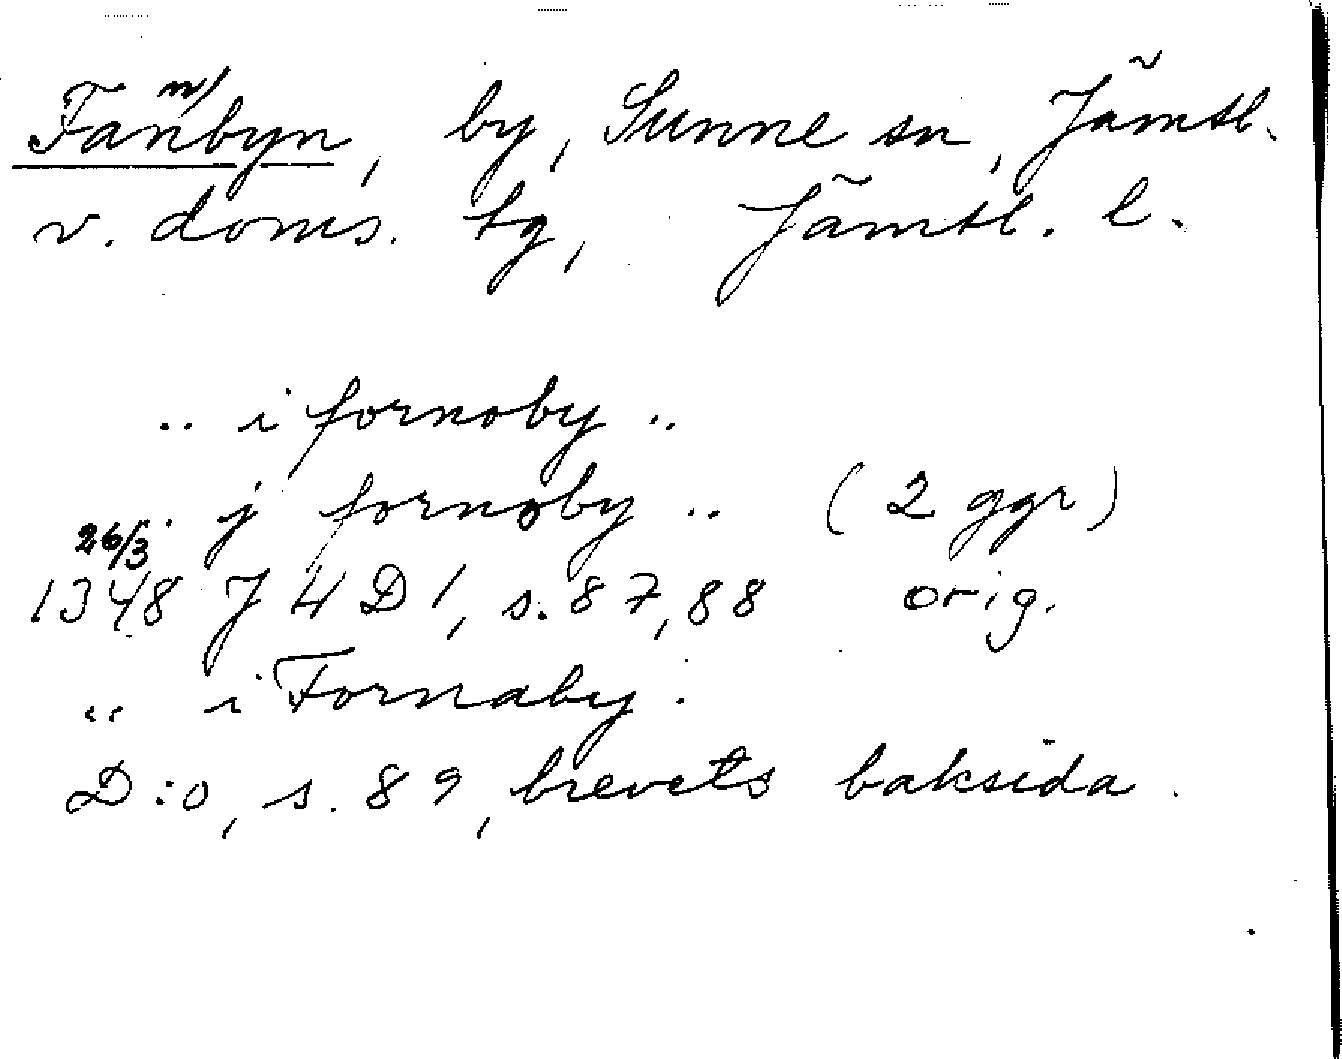 Fanbyn, by, Sunne sn, Jämtl.
v. doms. tg, Jämtl. l.
.. i fornoby ..
.. j fornoby .. (2 ggr)
26/3
1348 J 4 D 1, s. 87, 88 orig.
.. i Fornaby.
D:o, s. 89, brevets baksida.